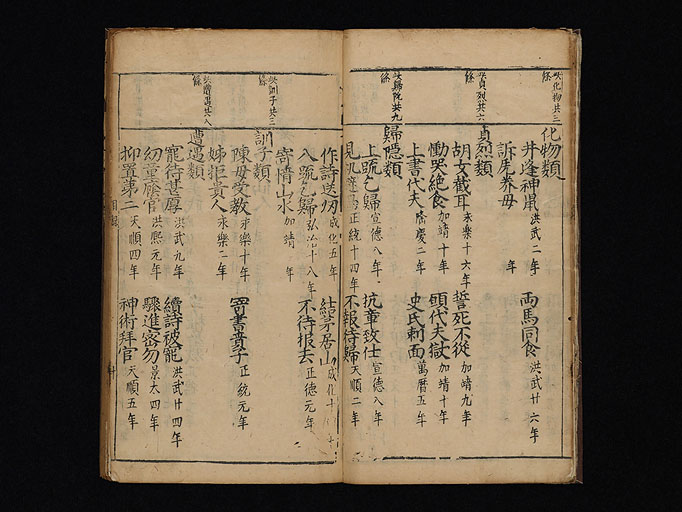 此化物共三條
化物類
井逢神鼠 洪武二年 両馬同食 洪武廿六年
訴虎养母 年
此貞烈共六條
貞烈類
胡女截耳 永樂十六年 誓死不從 加靖九年
慟哭絶食 加靖十年 願代夫獄 加靖十年
上書代夫 隆慶二年 史氏刺面 萬暦五年
此歸隠共九條
歸隠類
上疏乞歸 宣德八年 抗章致仕 宣德八年
見 正統十四年 不報待歸 天順二年
作詩送 成化五年 結茅居山 成化十 年
八疏乞歸 弘治十八年 不待报去 正德元年
寄情山水 加靖 年
此訓子共三條
訓子類
陳母受教 永樂十年 寄書責子 正統元年
姊拒貴人 永樂二年
此遭遇共八條
遭遇類
寵待甚厚 洪武九年 續詩被寵 洪武廿四年
幼童廕官 洪熙元年 驟進密勿 景太四年
抑置第二 天順四年 神術拜官 天順五年
目録